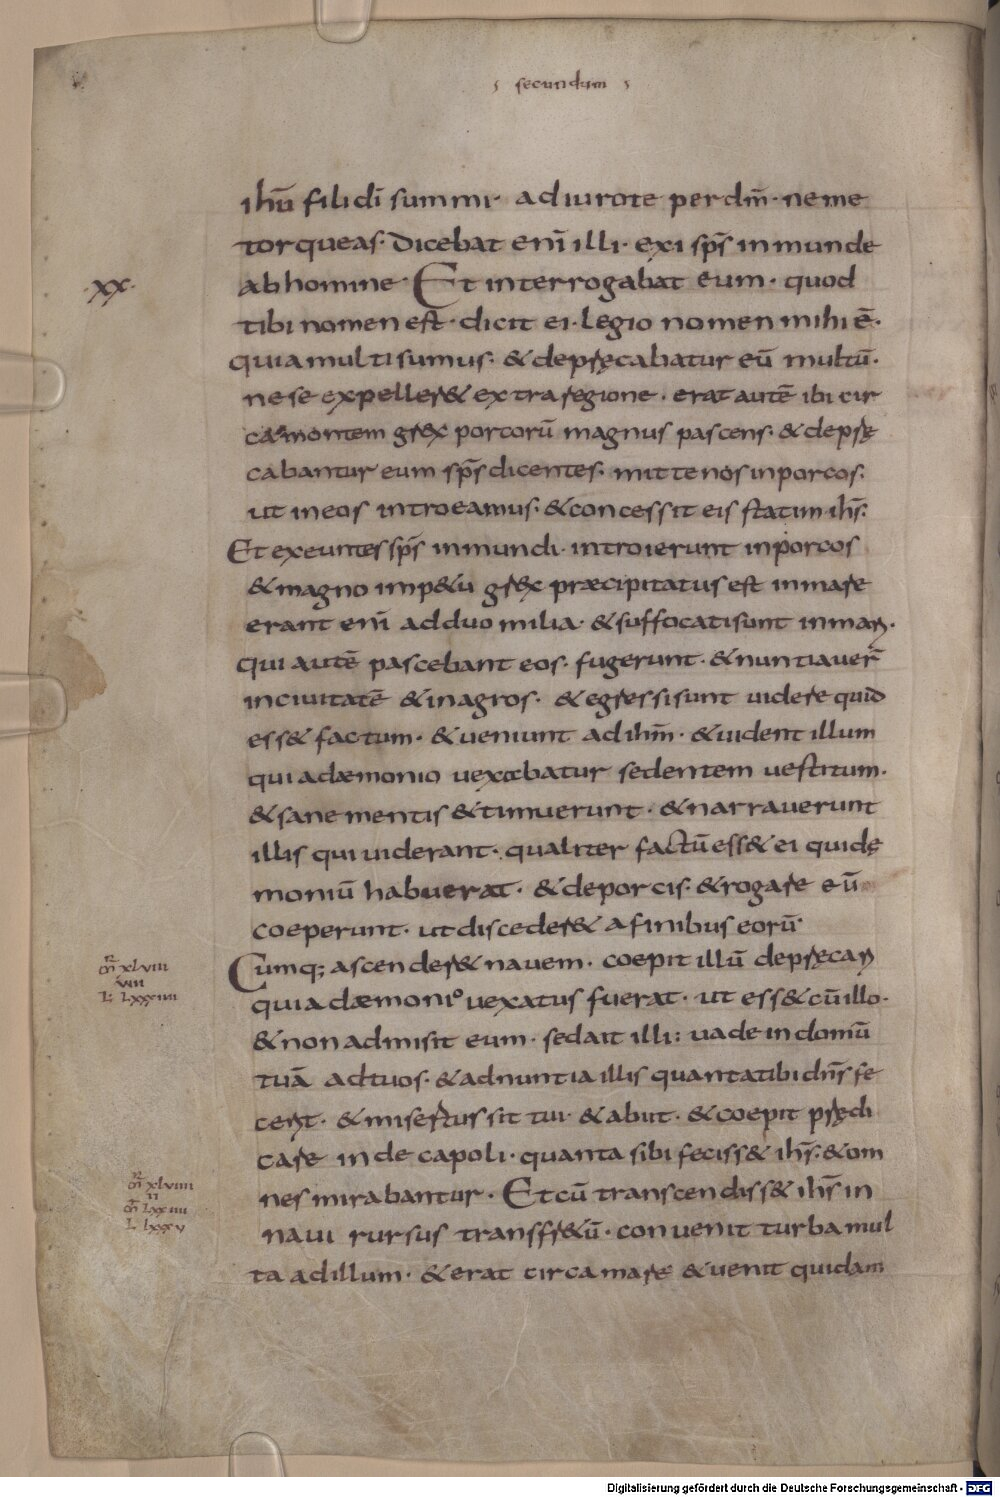 secundum
ihū fili dī summi· adiuro te per dm̄· ne me
torqueas· Dicebat enī illi· exi sps̄ inmunde
ab homine· Et interrogabat eum· quod
xx
tibi nomen est· dicit ei· legio nomen mihi ē·
quia multi sumus· & deprȩcabatur eū multū·
ne se expeller& extra regione· erat autē ibi cir
ca montem grex porcorū magnus pascens· & deprȩ
cabantur eum sps̄ dicentes· mitte nos in porcos·
ut in eos introeamus· & concessit eis statim ihs̄·
Et exeuntes sps̄ inmundi· introierunt in porcos
& magno imp&u grex præcipitatus est in mare
erant enī ad duo milia· & suffocati sunt in mari·
qui autē pascebant eos· fugerunt· & nuntiauer̄
in ciuitatē & in agros· & egressi sunt uidere quid
ess& factum· & ueniunt ad ihm̄· & uident illum
qui a dæmonio uexabatur sedentem uestitum·
& sane mentis & timuerunt· & narrauerunt
illis qui uiderant· qualiter factū ess& ei qui dȩ
moniū habuerat· & de porcis· & rogare eū
coeperunt· ut disceder& a finibus eorū·
Cumq; ascender& nauem· coepit illū deprȩcari
m̄r xlviii
viii
L· lxxxiiii
qui a dæmonio uexatus fuerat· ut ess& cū illo·
& non admisit eum· sed ait illi: uade in domū
tuā ad tuos· & adnuntia illis quanta tibi dn̄s fe
cerit· & misertus sit tui· & abiit· & coepit prȩdi
care in decapoli· quanta sibi feciss& ihs̄· & om
m̄r xlviiii
ii
m̄ lxxiiii
L· lxxxv
nes mirabantur· Et cū transcendiss& ihs̄ in
naui rursus transfr&ū· conuenit turba mul
ta ad illum· & erat circa mare & uenit quidam
Digitalisierung gefördert durch die Deutsche Forschungsgemeinschaft - DFG